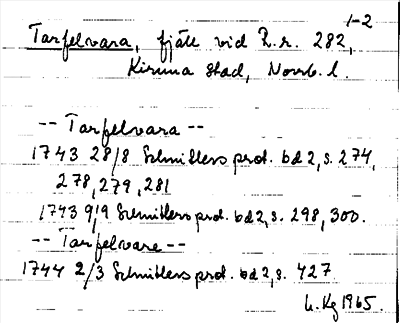 1-2
Tarfelvara, fjäll vid R.r. 282,
Kiruna stad, Norrb. l.
-- Tarfelvara --
1743 28/8 Schnitlers prot. bd 2, s. 274,
278, 279, 281
1743 9/9 Schnitlers prot. bd 2, s. 298, 300.
-- Tarfelvare --
1744 2/3 Schnitlers prot. bd 2, s. 427
Kg 1965.